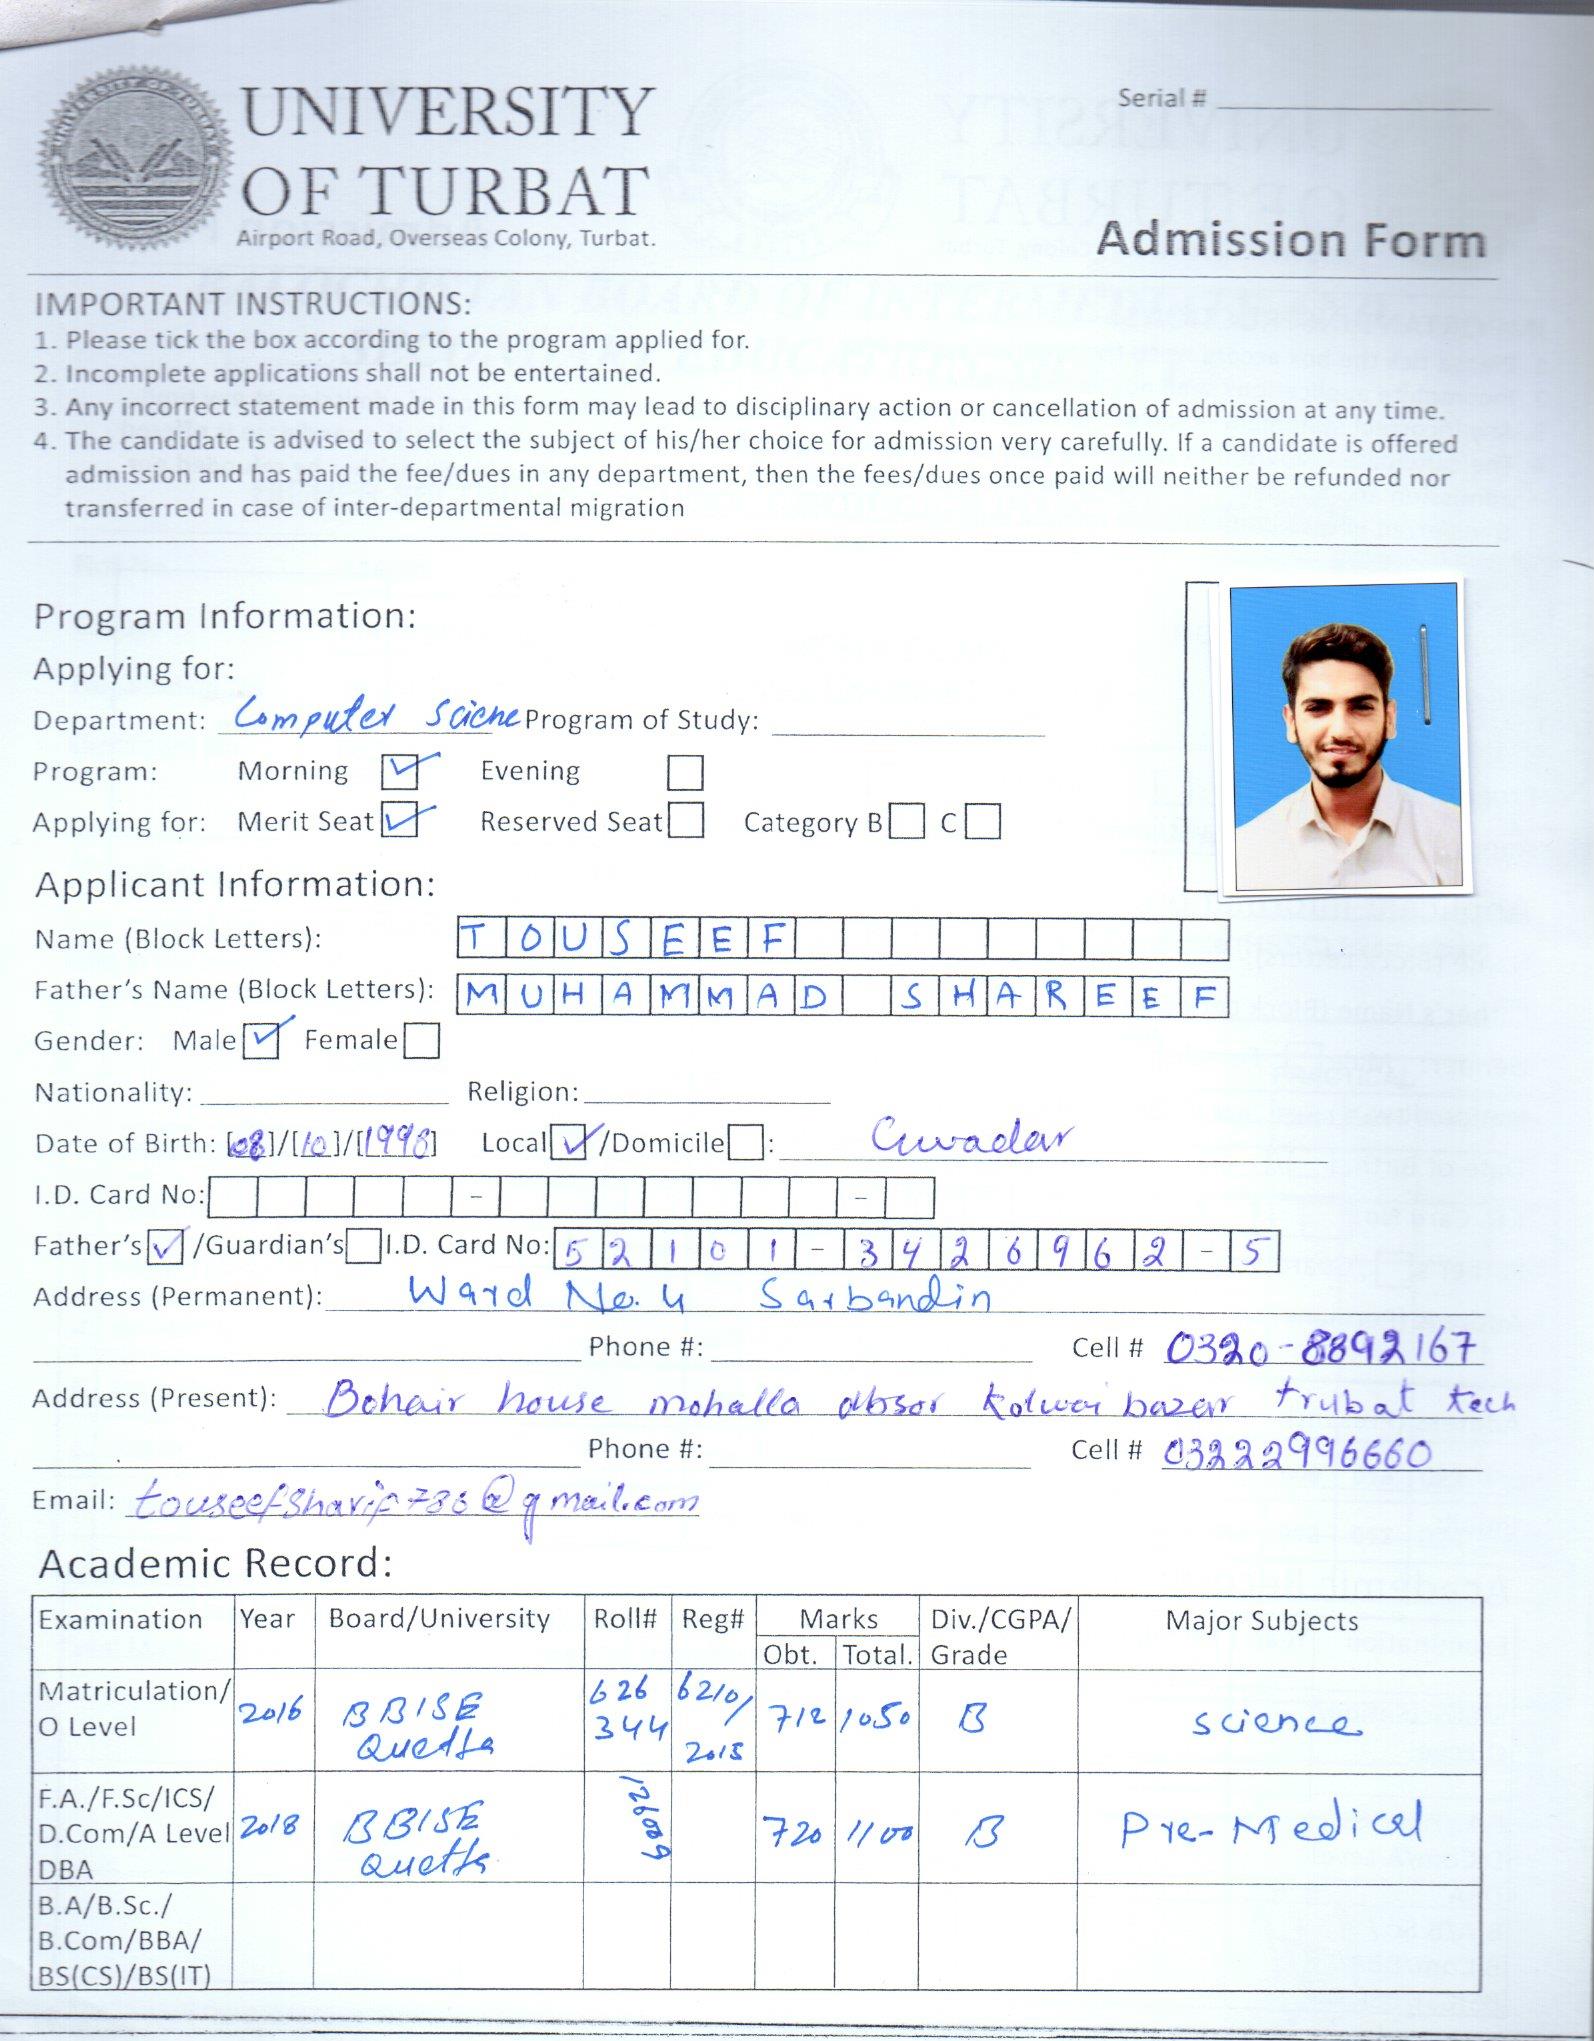 UNIVERSITY
OF TURBAT
Airport Road, Overseas Colony, Turbat.
Serial #
Admission Form
IMPORTANT INSTRUCTIONS:
1. Please tick the box according to the program applied for.
2. Incomplete applications shall not be entertained.
3. Any incorrect statement made in this form may lead to disciplinary action or cancellation of admission at any time.
4. The candidate is advised to select the subject of his/her choice for admission very carefully. If a candidate is offered
admission and has paid the fee/dues in any department, then the fees/dues once paid will neither be refunded nor
transferred in case of inter-departmental migration
Program Information:
Applying for:
Department: Computer Sciene Program of Study:
Program: Morning Evening
Applying for: Merit Seat Reserved Seat Category B C
Applicant Information:
Name (Block Letters): TOUSEEF
Father's Name (Block Letters): MUHAMMAD SHAREEF
Gender: Male Female
Nationality: Religion:
Date of Birth: [08]/[10]/[1998] Local /Domicile : Gwadar
I.D. Card No: - -
Father's /Guardian's I.D. Card No: 52101-3426962-5
Address (Permanent): Ward No. 4 Sarbandin
Phone #: Cell # 0320-8892167
Address (Present): Bohair house mohalla absor kolwai bazar trubat tech
Phone #: Cell # 03222996660
Email: touseefsharif786@gmail.com
Academic Record:
Examination Year Board/University Roll# Reg# Marks Div./CGPA/ Major Subjects
Obt. Total. Grade
Matriculation/ 2016 BBISE 626 6210/ 712 1050 B science
O Level Quetta 344 2015
F.A./F.Sc/ICS/
D.Com/A Level 2018 BBISE 720 1100 B Pre-Medical
DBA Quetta
B.A/B.Sc./
B.Com/BBA/
BS(CS)/BS(IT)